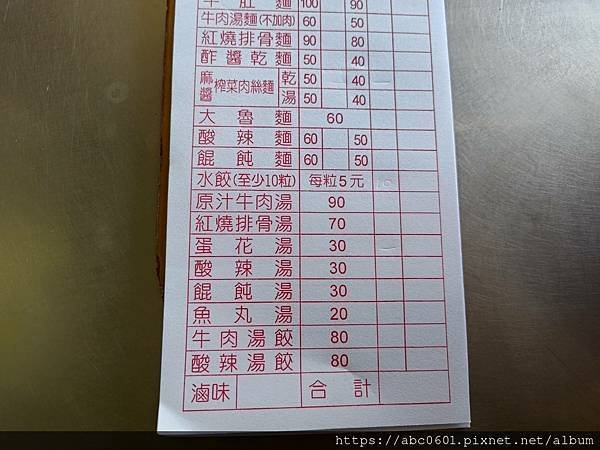 牛肚麵 100 90
牛肉湯麵(不加肉) 60 50
紅燒排骨麵 90 80
酢醬乾麵 50 40
麻醬 榨菜肉絲麵 乾 50 40
湯 50 40
大魯麵 60
酸辣麵 60 50
餛飩麵 60 50
水餃(至少10粒) 每粒5元
原汁牛肉湯 90
紅燒排骨湯 70
蛋花湯 30
酸辣湯 30
餛飩湯 30
魚丸湯 20
牛肉湯餃 80
酸辣湯餃 80
滷味 合計
https://abc0601.pixnet.net/album